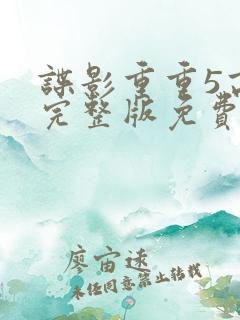 諜影重重5高
完整版免費
廖宙速
未任同意禁止转载